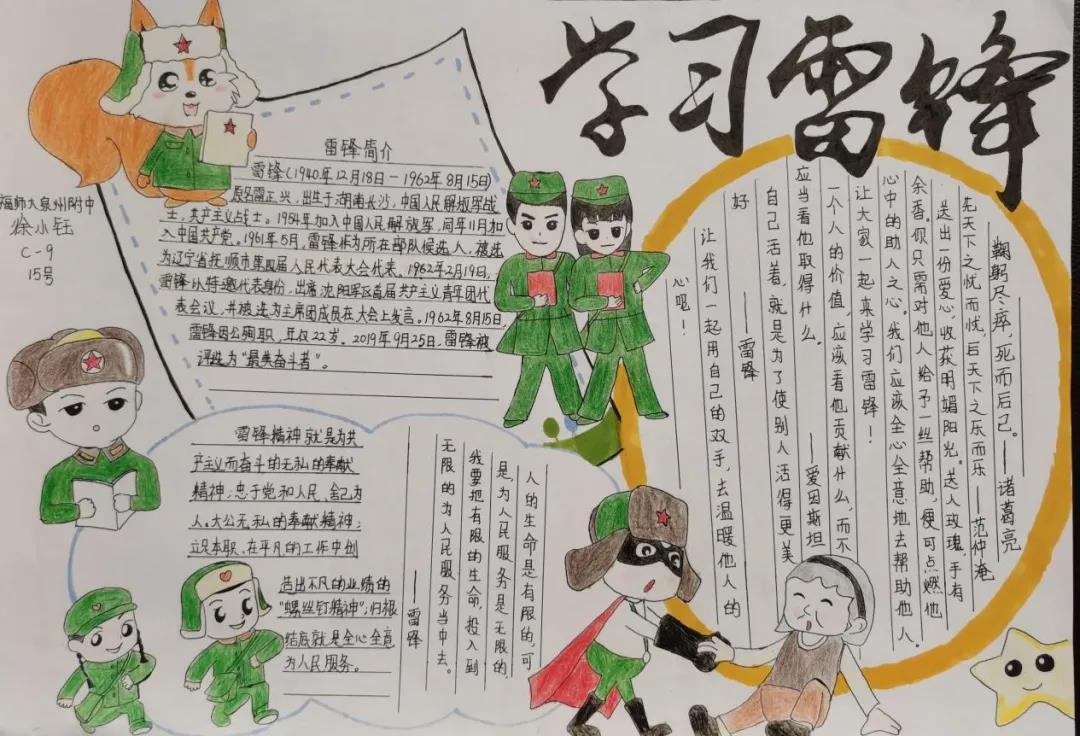 学习雷锋
福师大泉州附中
徐小钰
C-9
15号
雷锋简介
雷锋(1940年12月18日-1962年8月15日)
原名雷正兴,出生于湖南长沙,中国人民解放军战
士,共产主义战士。1954年加入中国人民解放军,同年11月加
入中国共产党。1961年5月,雷锋作为所在部队候选人,被选
为辽宁省抚顺市第四届人民代表大会代表、1962年2月19日,
雷锋以特邀代表身份,出席沈阳军区首届共产主义青年团代
表会议,并被选为主席团成员在大会上发言。1962年8月15日,
雷锋因公殉职,年仅22岁。2019年9月25日,雷锋被
评选为“最美奋斗者”。
鞠躬尽瘁,死而后己。——诸葛亮
先天下之忧而忧,后天下之乐而乐——范仲淹
送出一份爱心,收获明媚阳光。送人玫瑰,手有
余香。你只需对他人给予一丝帮助,便可点燃他
心中的助人之心。我们应该全心全意地去帮助他人。
让大家一起来学习雷锋!
一个人的价值,应该看他贡献什么,而不
应当看他取得什么。——爱因斯坦
自己活着,就是为了使别人活得更美
好——雷锋
让我们一起用自己的双手,去温暖他人的
心吧!
雷锋精神就是为共
产主义而奋斗的无私的奉献
精神;忠于党和人民、舍己为
人、大公无私的奉献精神;
立足本职、在平凡的工作中创
造出不凡的业绩的
“螺丝钉精神”;归根
结底就是全心全意
为人民服务。
人的生命是有限的,可
是,为人民服务是无限的,
我要把有限的生命,投入到
无限的为人民服务当中去。
——雷锋